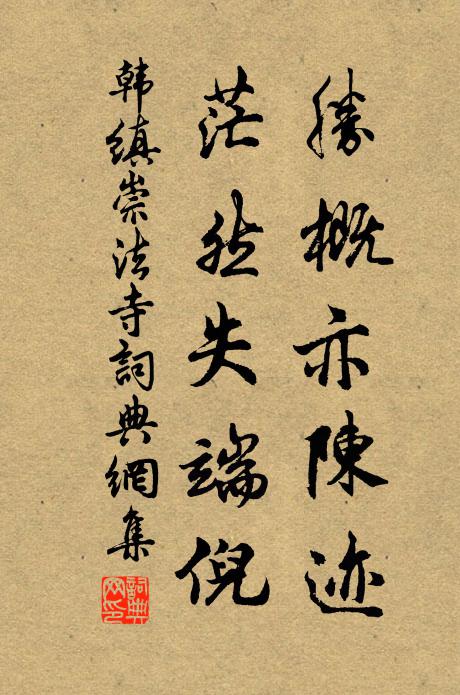 勝概亦陳迹
茫然失端倪
韩縝崇法寺詞典網集
詞典网印